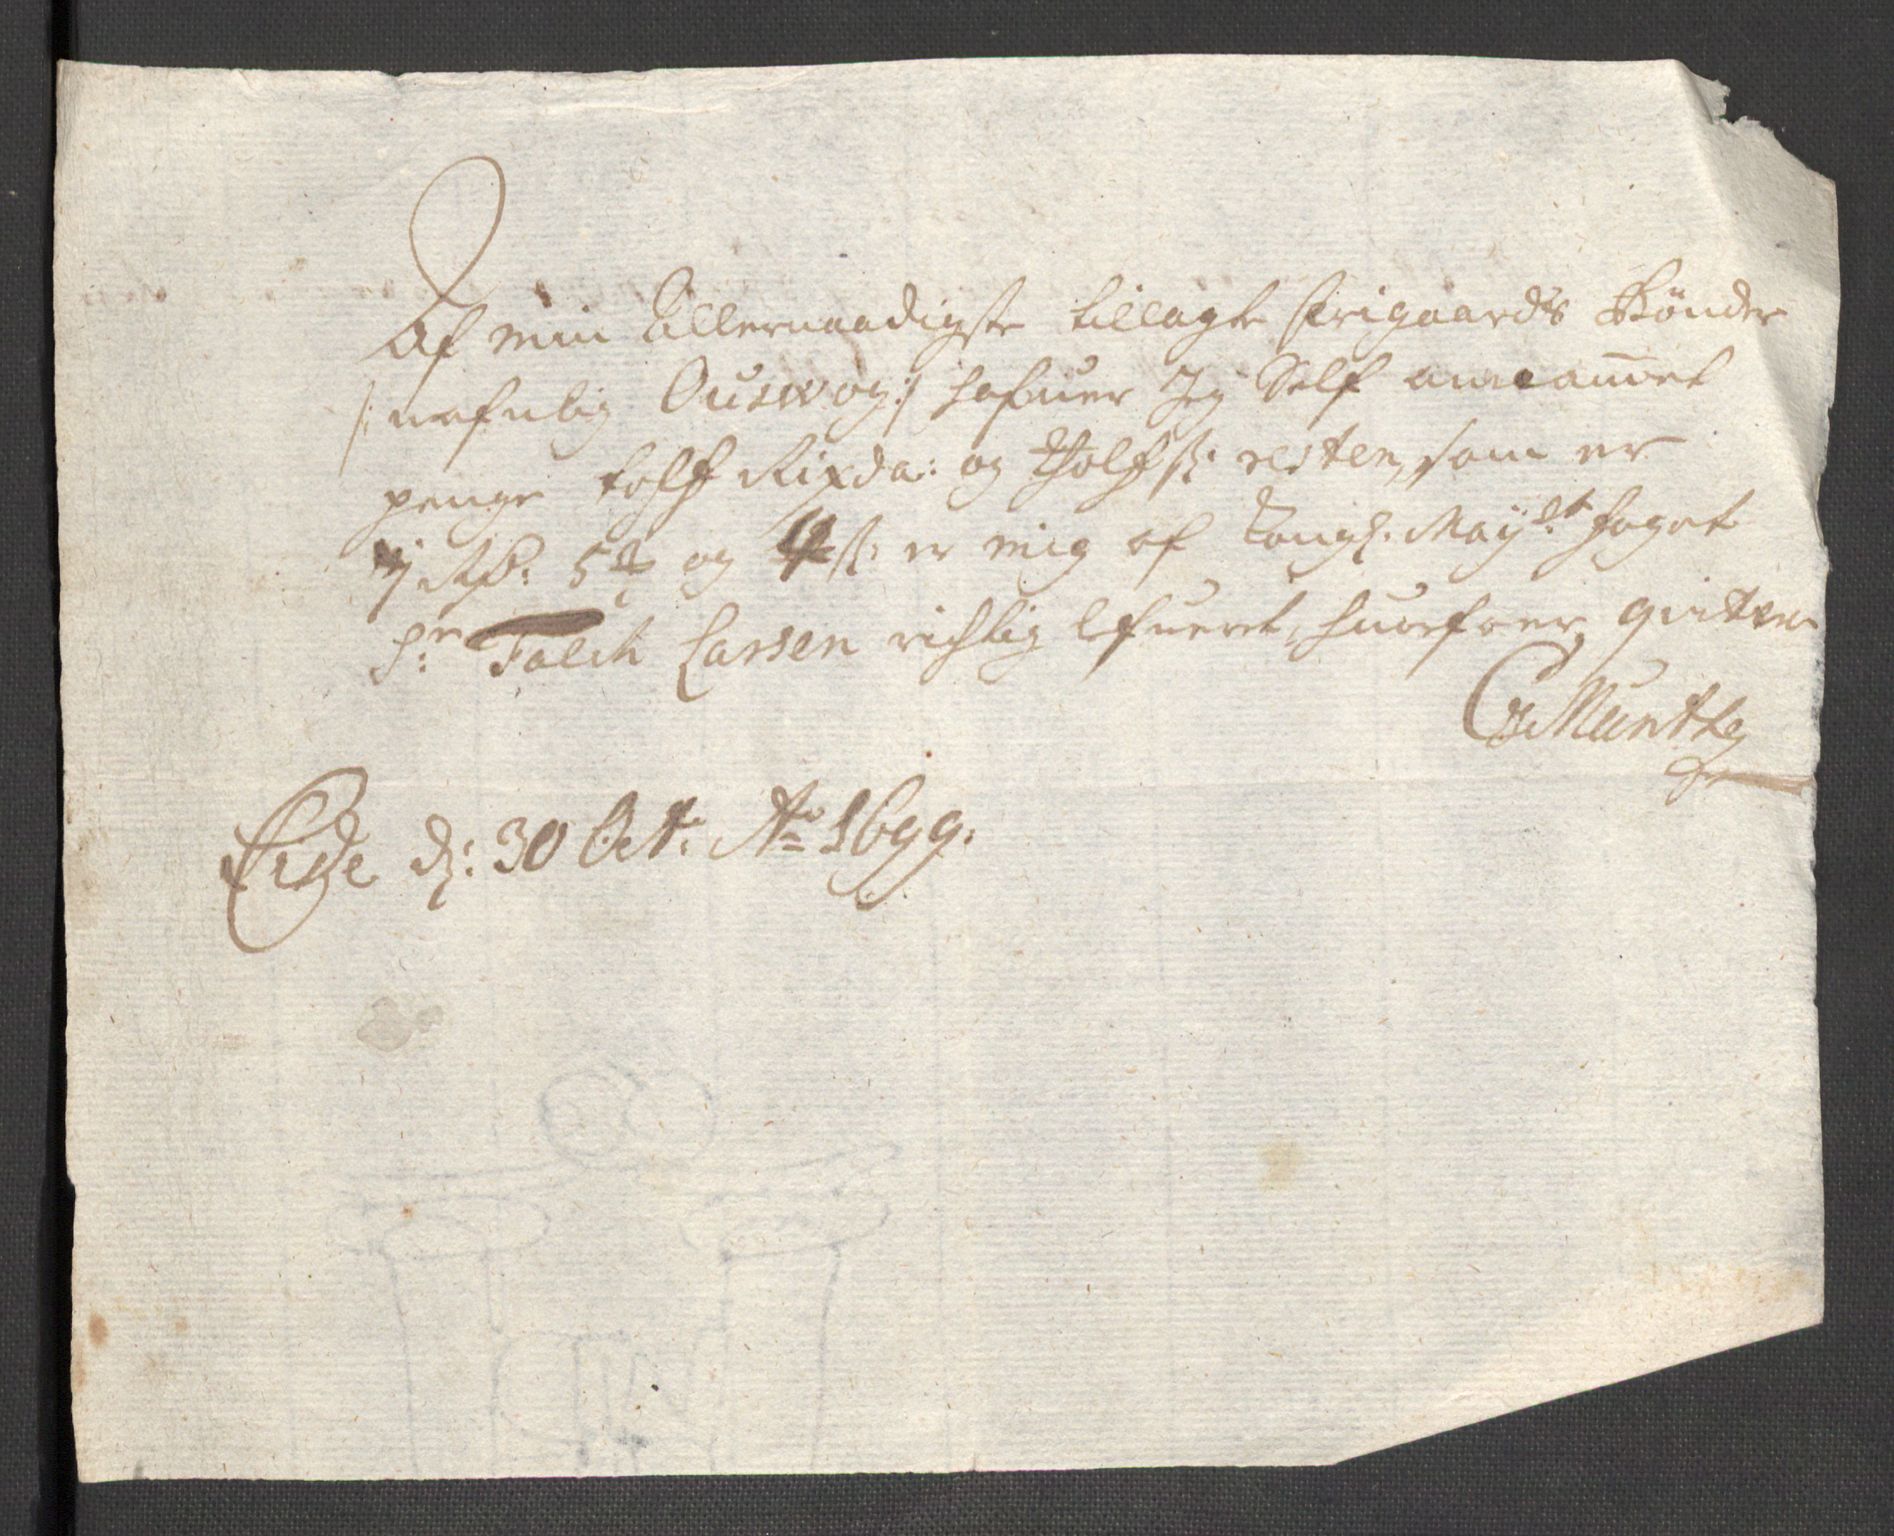 Af min Allernaadigste tillagte frigaards Bønder
/: nafnlig Ouswog :/ hafuer Jeg Self annammet
penge tolf Rixda: og tholf ß: resten, som er
Rd: 5 og 4 ß: er mig af Kongl: Mayts foget
Sr: Falch Larsen richtig lefueret, huorfoer quitter
GMunthe
Eide d: 30 Oct: Ao 1699.